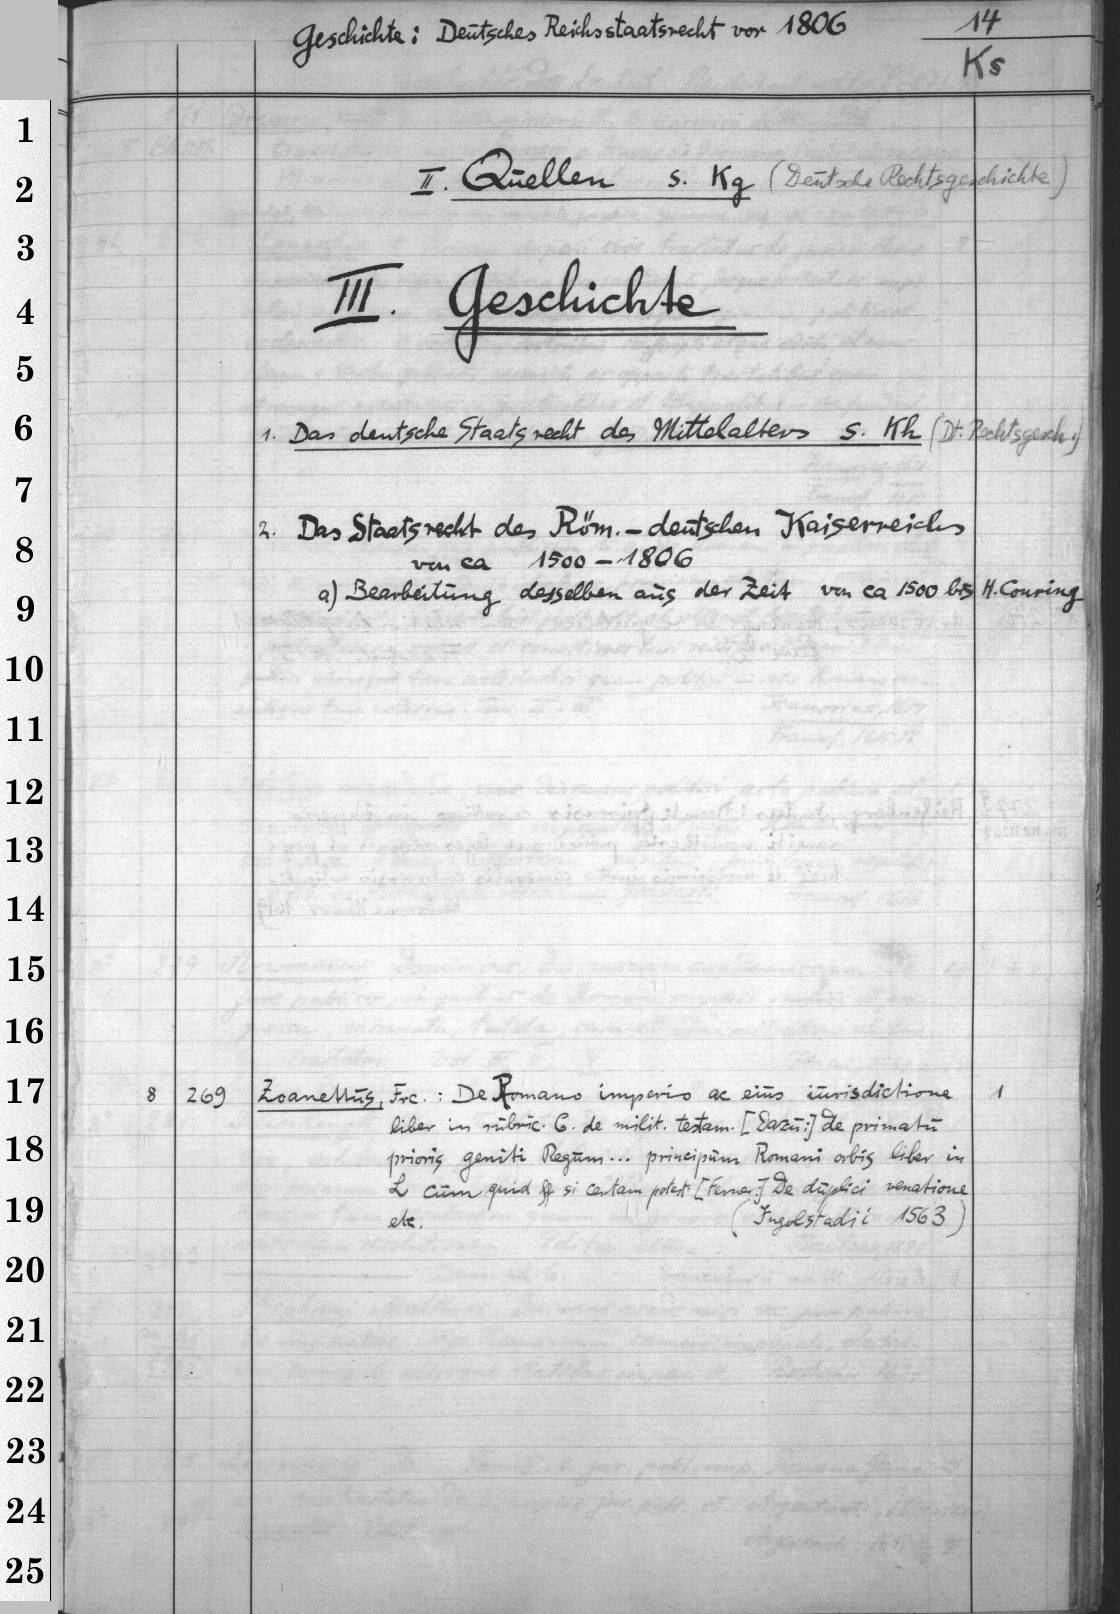 Geschichte: Deutsches Reichsstaatsrecht vor 1806
14
Ks
1
2
3
4
5
6
7
8
9
10
11
12
13
14
15
16
17
18
19
20
21
22
23
24
25
II. Quellen s. Kg (Deutsche Rechtsgeschichte)
III. Geschichte
1. Das deutsche Staatsrecht des Mittelalters s. Kh (Dt. Rechtsgesch.)
2. Das Staatsrecht des Röm.-deutschen Kaiserreichs
von ca 1500-1806
a) Bearbeitung desselben aus der Zeit von ca 1500 bis H. Conring
8 269 Zoanettus, Frc.: De Romano imperio ac eius iurisdictione 1
liber in rubric. C. de milit. testam. [Dazu:] De primatu
prioris geniti Regum... principum Romani orbis liber in
L cum quid ff si certam potest [Ferner:] De duplici venatione
etc. (Ingolstadii 1563)